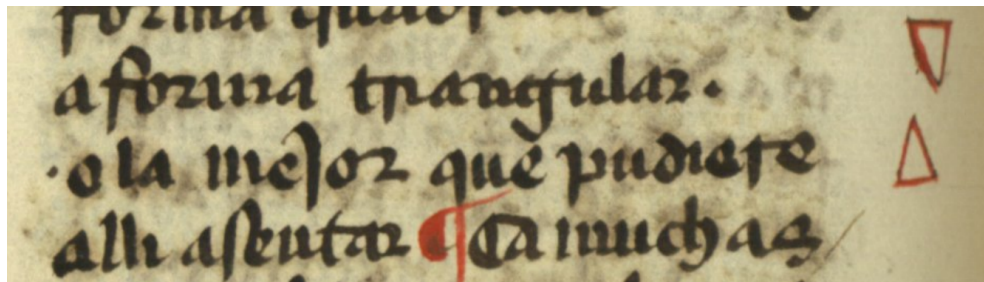 forma
a forma triangular.
·o la mejor que pudiere
alli asentar ¶ Ca muchas